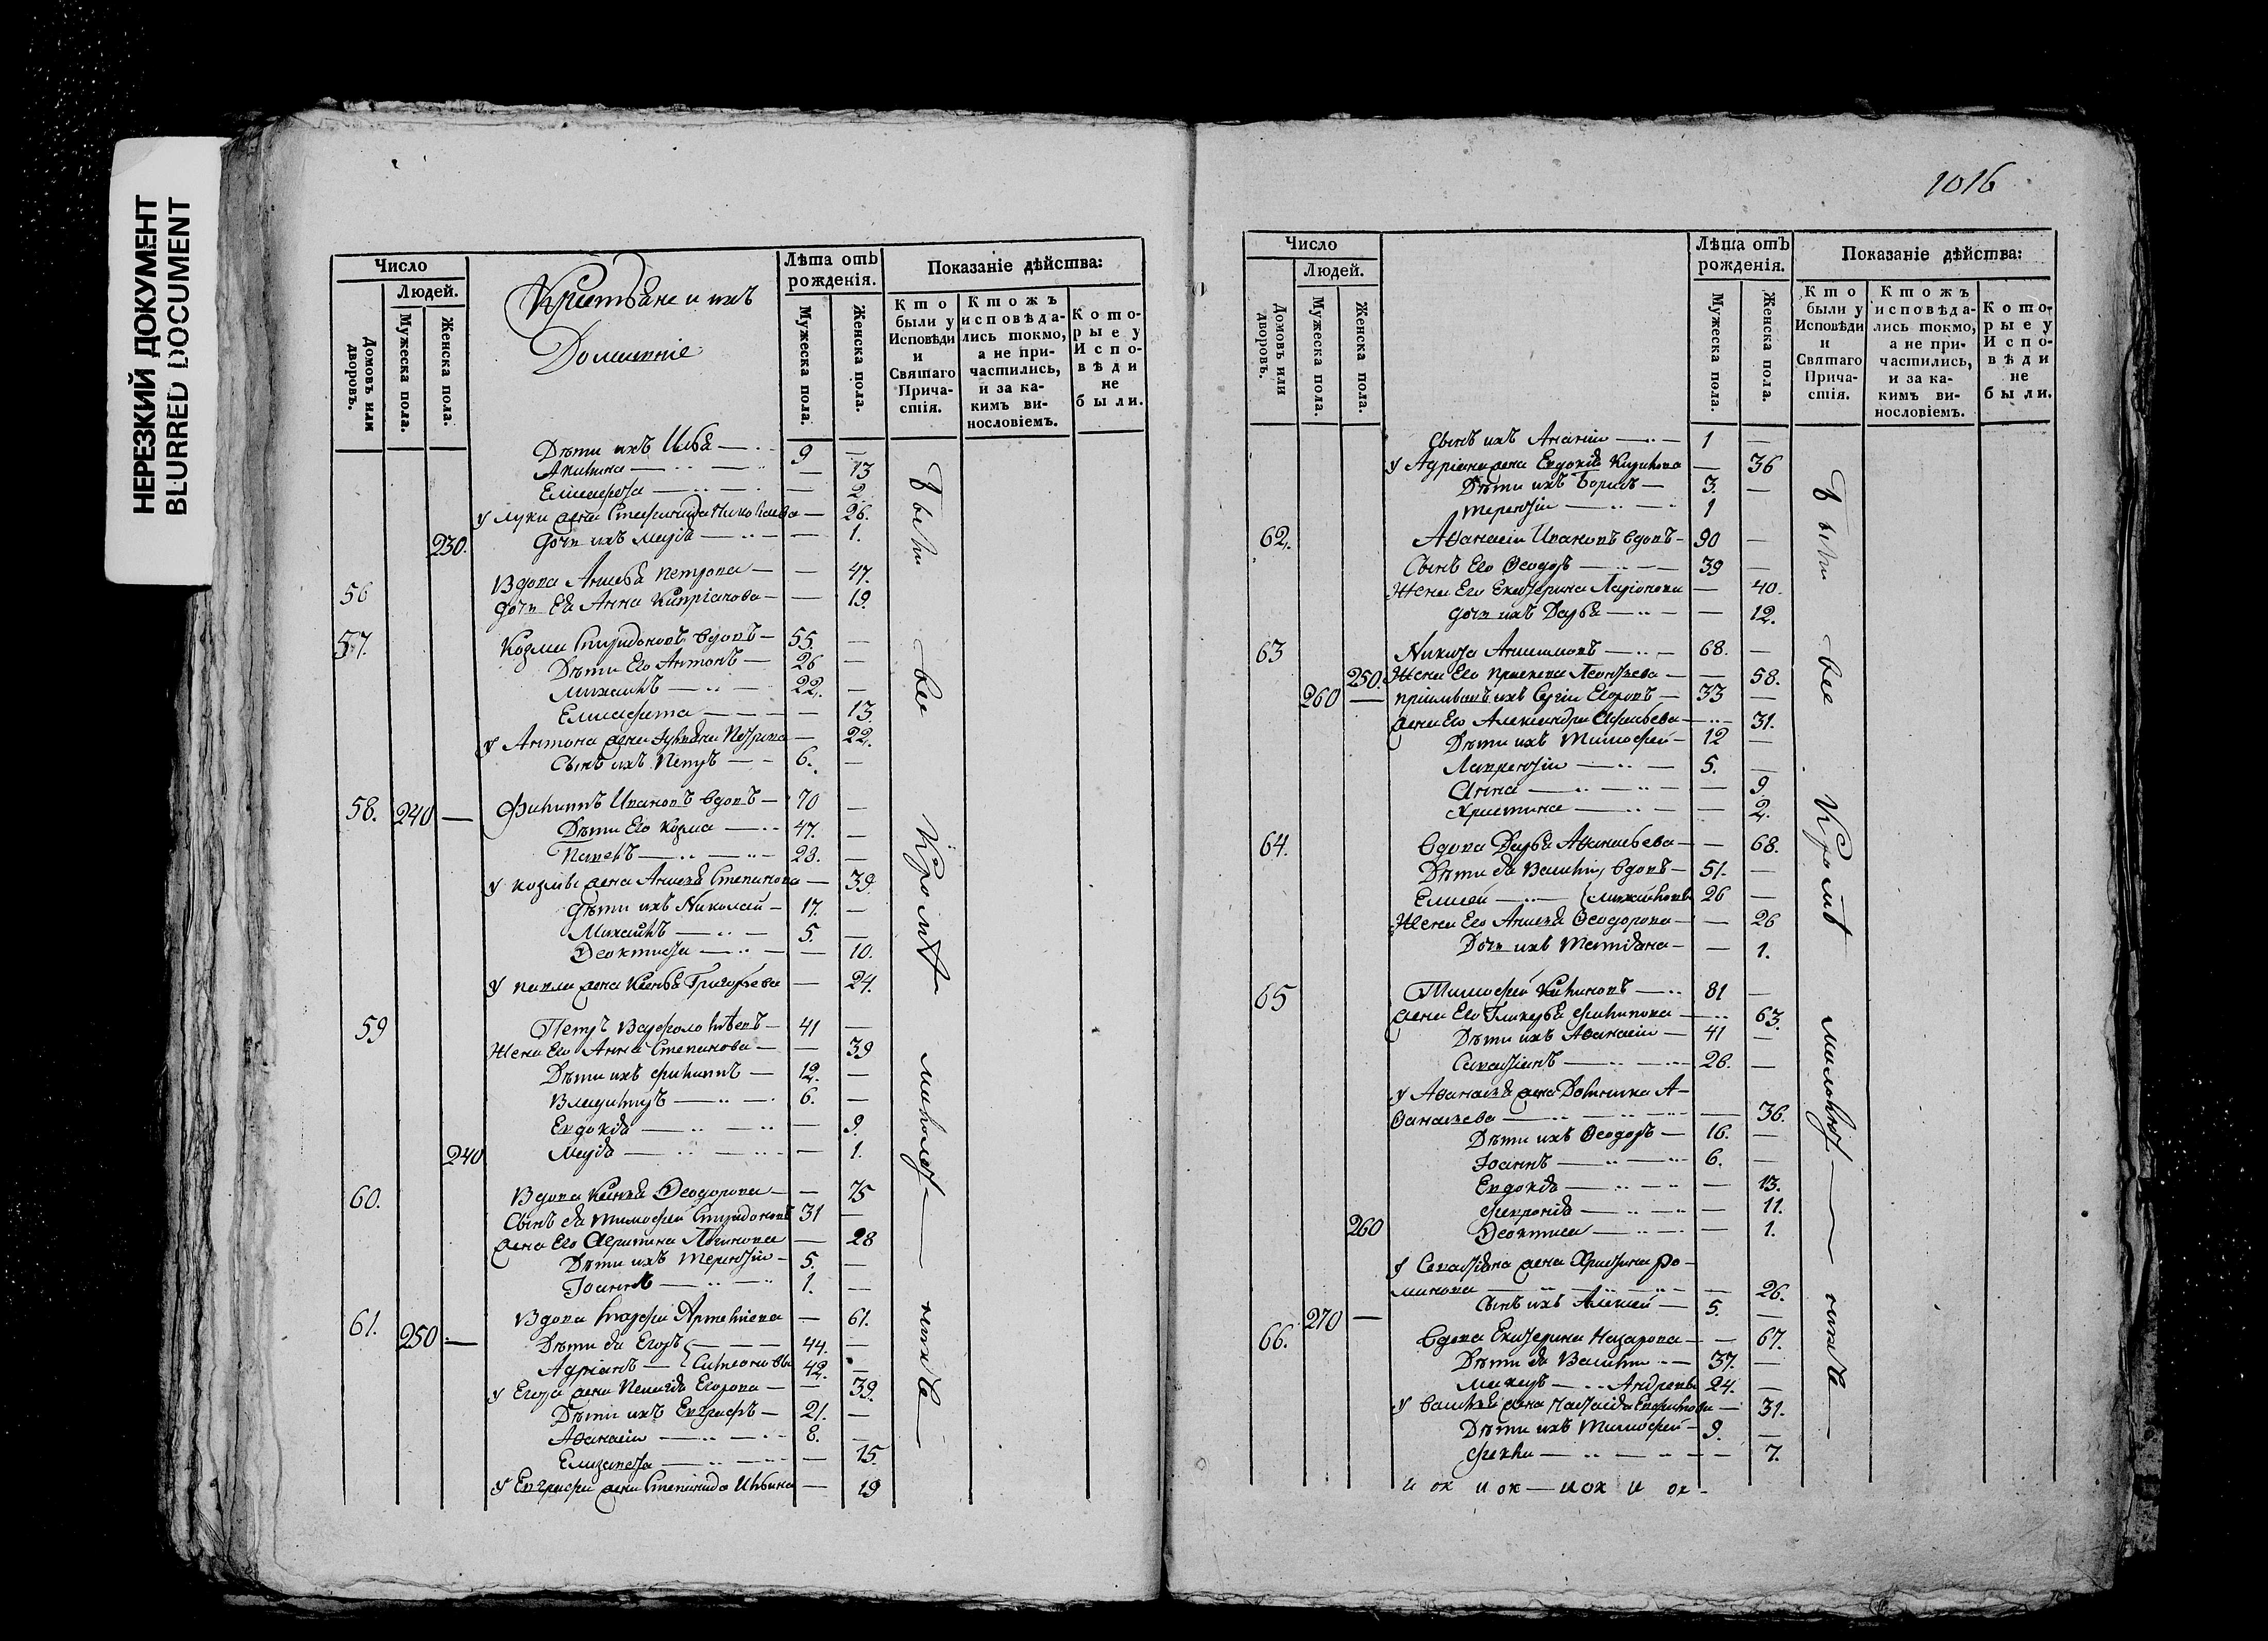 НЕРЕЗКИЙ ДОКУМЕНТ
BLURRED DOCUMENT
Число
Людей.
Домовъ или дворовъ.
Мужеска пола.
Женска пола.
Крестьяне и ихъ
Домашніе
Лѣта отъ рожденія.
Мужеска пола.
Женска пола.
Показаніе дѣйства:
Кто были у Исповѣди и Святаго Прича-стія.
Ктожъ исповѣда-лись токмо, а не при-частились, и за ка-кимъ ви-нословіемъ.
Кото-рые у Испо-вѣди не были.
Дѣти ихъ Илья — 9 —
Акилина — — 13
— 2
у Луки жена Стефанида Николаева — 26.
230. Дочь ихъ Марія — — 1.
56 Вдова Анисья Петрова — — 47.
дочь Ея Анна Кипріанова — — 19.
57. Козма Спиридоновъ вдовъ — 55. —
Дѣти Его Антонъ — 26 —
Михаилъ — 22. —
Елисавета — — 13.
у Антона жена Петрова — 22.
Сынъ ихъ Петръ — 6. —
58. 240 — Филиппъ Ивановъ вдовъ — 70 —
Дѣти Его Козма — 47. —
Павелъ — 23. —
у Козмы жена Анисья Степанова — 39.
дѣти ихъ Николай — 17. —
Михаилъ — 5. —
Феоктиста — — 10.
у Павла жена Ксенья Григорьева — 24.
59 Петръ Варфоломѣевъ — 41 —
Жена Его Анна Степанова — — 39
Дѣти ихъ Филиппъ — 12. —
Владимиръ — 6. —
Евдокія — — 9.
240 Марія — — 1.
60. Вдова Ксенья Ѳеодорова — — 75
Сынъ ея Тимофей Спиридоновъ 31 —
жена Его Агрипина Логинова — 28
Дѣти ихъ Терентій — 5. —
Іоаннъ — 1. —
61. Вдова Марфа Артемиева — 61.
250 — Дѣти ея Егоръ — 44. —
Адріанъ — Симеоновы 42. —
у Егора жена Пелагія Егорова — 39.
Дѣти ихъ Евграфъ — 21. —
Аѳанасій — 8. —
Елизавета — — 15.
у Евграфа жена Степанида Ильина — 19
были все Кромѣ малолет — никъ
1016
Число
Людей.
Домовъ или дворовъ.
Мужеска пола.
Женска пола.
Лѣта отъ рожденія.
Мужеска пола.
Женска пола.
Показаніе дѣйства:
Кто были у Исповѣди и Святаго Прича-стія.
Ктожъ исповѣда-лись токмо, а не при-частились, и за ка-кимъ ви-нословіемъ.
Кото-рые у Испо-вѣди не были.
Сынъ ихъ Ананій — 1 —
у Адріана жена Евдокія Кирилова — 36
Дѣти ихъ Борисъ — 3. —
Терентій — 1
62. Аѳанасій Ивановъ вдовъ — 90 —
Сынъ Его Ѳеодоръ — 39 —
Жена Его Екатерина Ларіонова — 40.
дочь ихъ Дарья — — 12.
63 Никита Анисимовъ — 68. —
250. Жена Его Прасковья Леонтьева — — 58.
260 — пріимышъ ихъ Сергій Егоровъ — 33 —
жена Его Александра — 31.
Дѣти ихъ Тимофей — 12 —
Лаврентій — 5. —
Анна — — 9.
Христина — — 2.
64. вдова Дарья Аѳанасьева — — 68.
Дѣти ея Василій вдовъ — 51. —
Елисей — Михайловы 26 —
Жена Его Анисья Ѳеодорова — — 26
Дочь ихъ Татіана — — 1.
65 Тимофей — 81 —
жена Его Гликерья Филипова — 63.
Дѣти ихъ Аѳанасій — 41 —
Севастіанъ — 26. —
у Аѳанасья жена Домника А-
фанасьева — — 36.
Дѣти ихъ Ѳеодоръ — 16. —
Іоаннъ — 6. —
Евдокія — — 13.
Февронія — — 11.
260 Ѳеоктиса — — 1.
у Севастіана жена Христина Ро-
манова — — 26.
270 — Сынъ ихъ Алексей — 5. —
66. вдова Екатерина Назарова — — 67.
Дѣти ея Василій — 37. —
Макаръ — Андреевы 24. —
у Василья жена Настасія — 31.
Дѣти ихъ Тимофей — 9. —
Фекла — — 7.
были все Кромѣ малолет — никъ